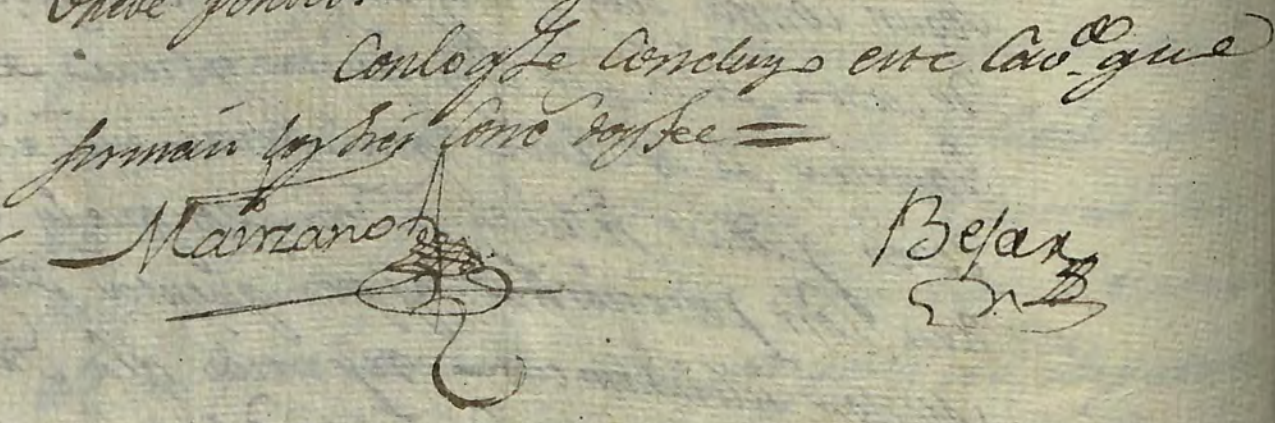 Conlo q.e se Concluyo este Cav.do que
firman los Sres Conc. doy fee =
Manzano
Bejar